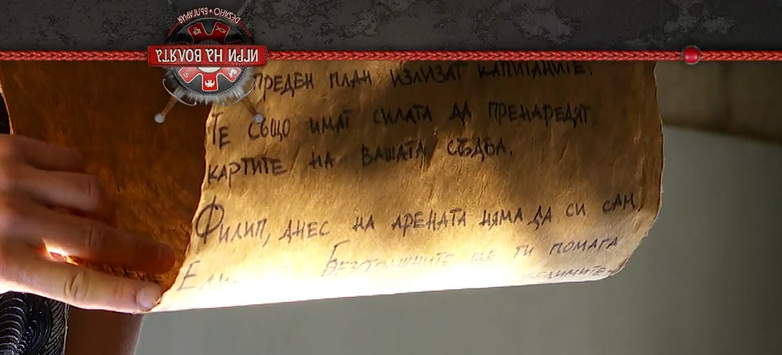 ИГРИ НА ВОЛЯТА
ПРЕДЕН ПЛАН ИЗЛИЗАТ КАПИТАНИТЕ.
ТЕ СЪЩО ИМАТ СИЛАТА ДА ПРЕНАРЕДЯТ
КАРТИТЕ НА ВАШАТА СЪДБА.
ФИЛИП, ДНЕС НА АРЕНАТА НЯМА ДА СИ САМ.
БЕЗСТРАШНИТЕ ЩЕ ТИ ПОМАГА